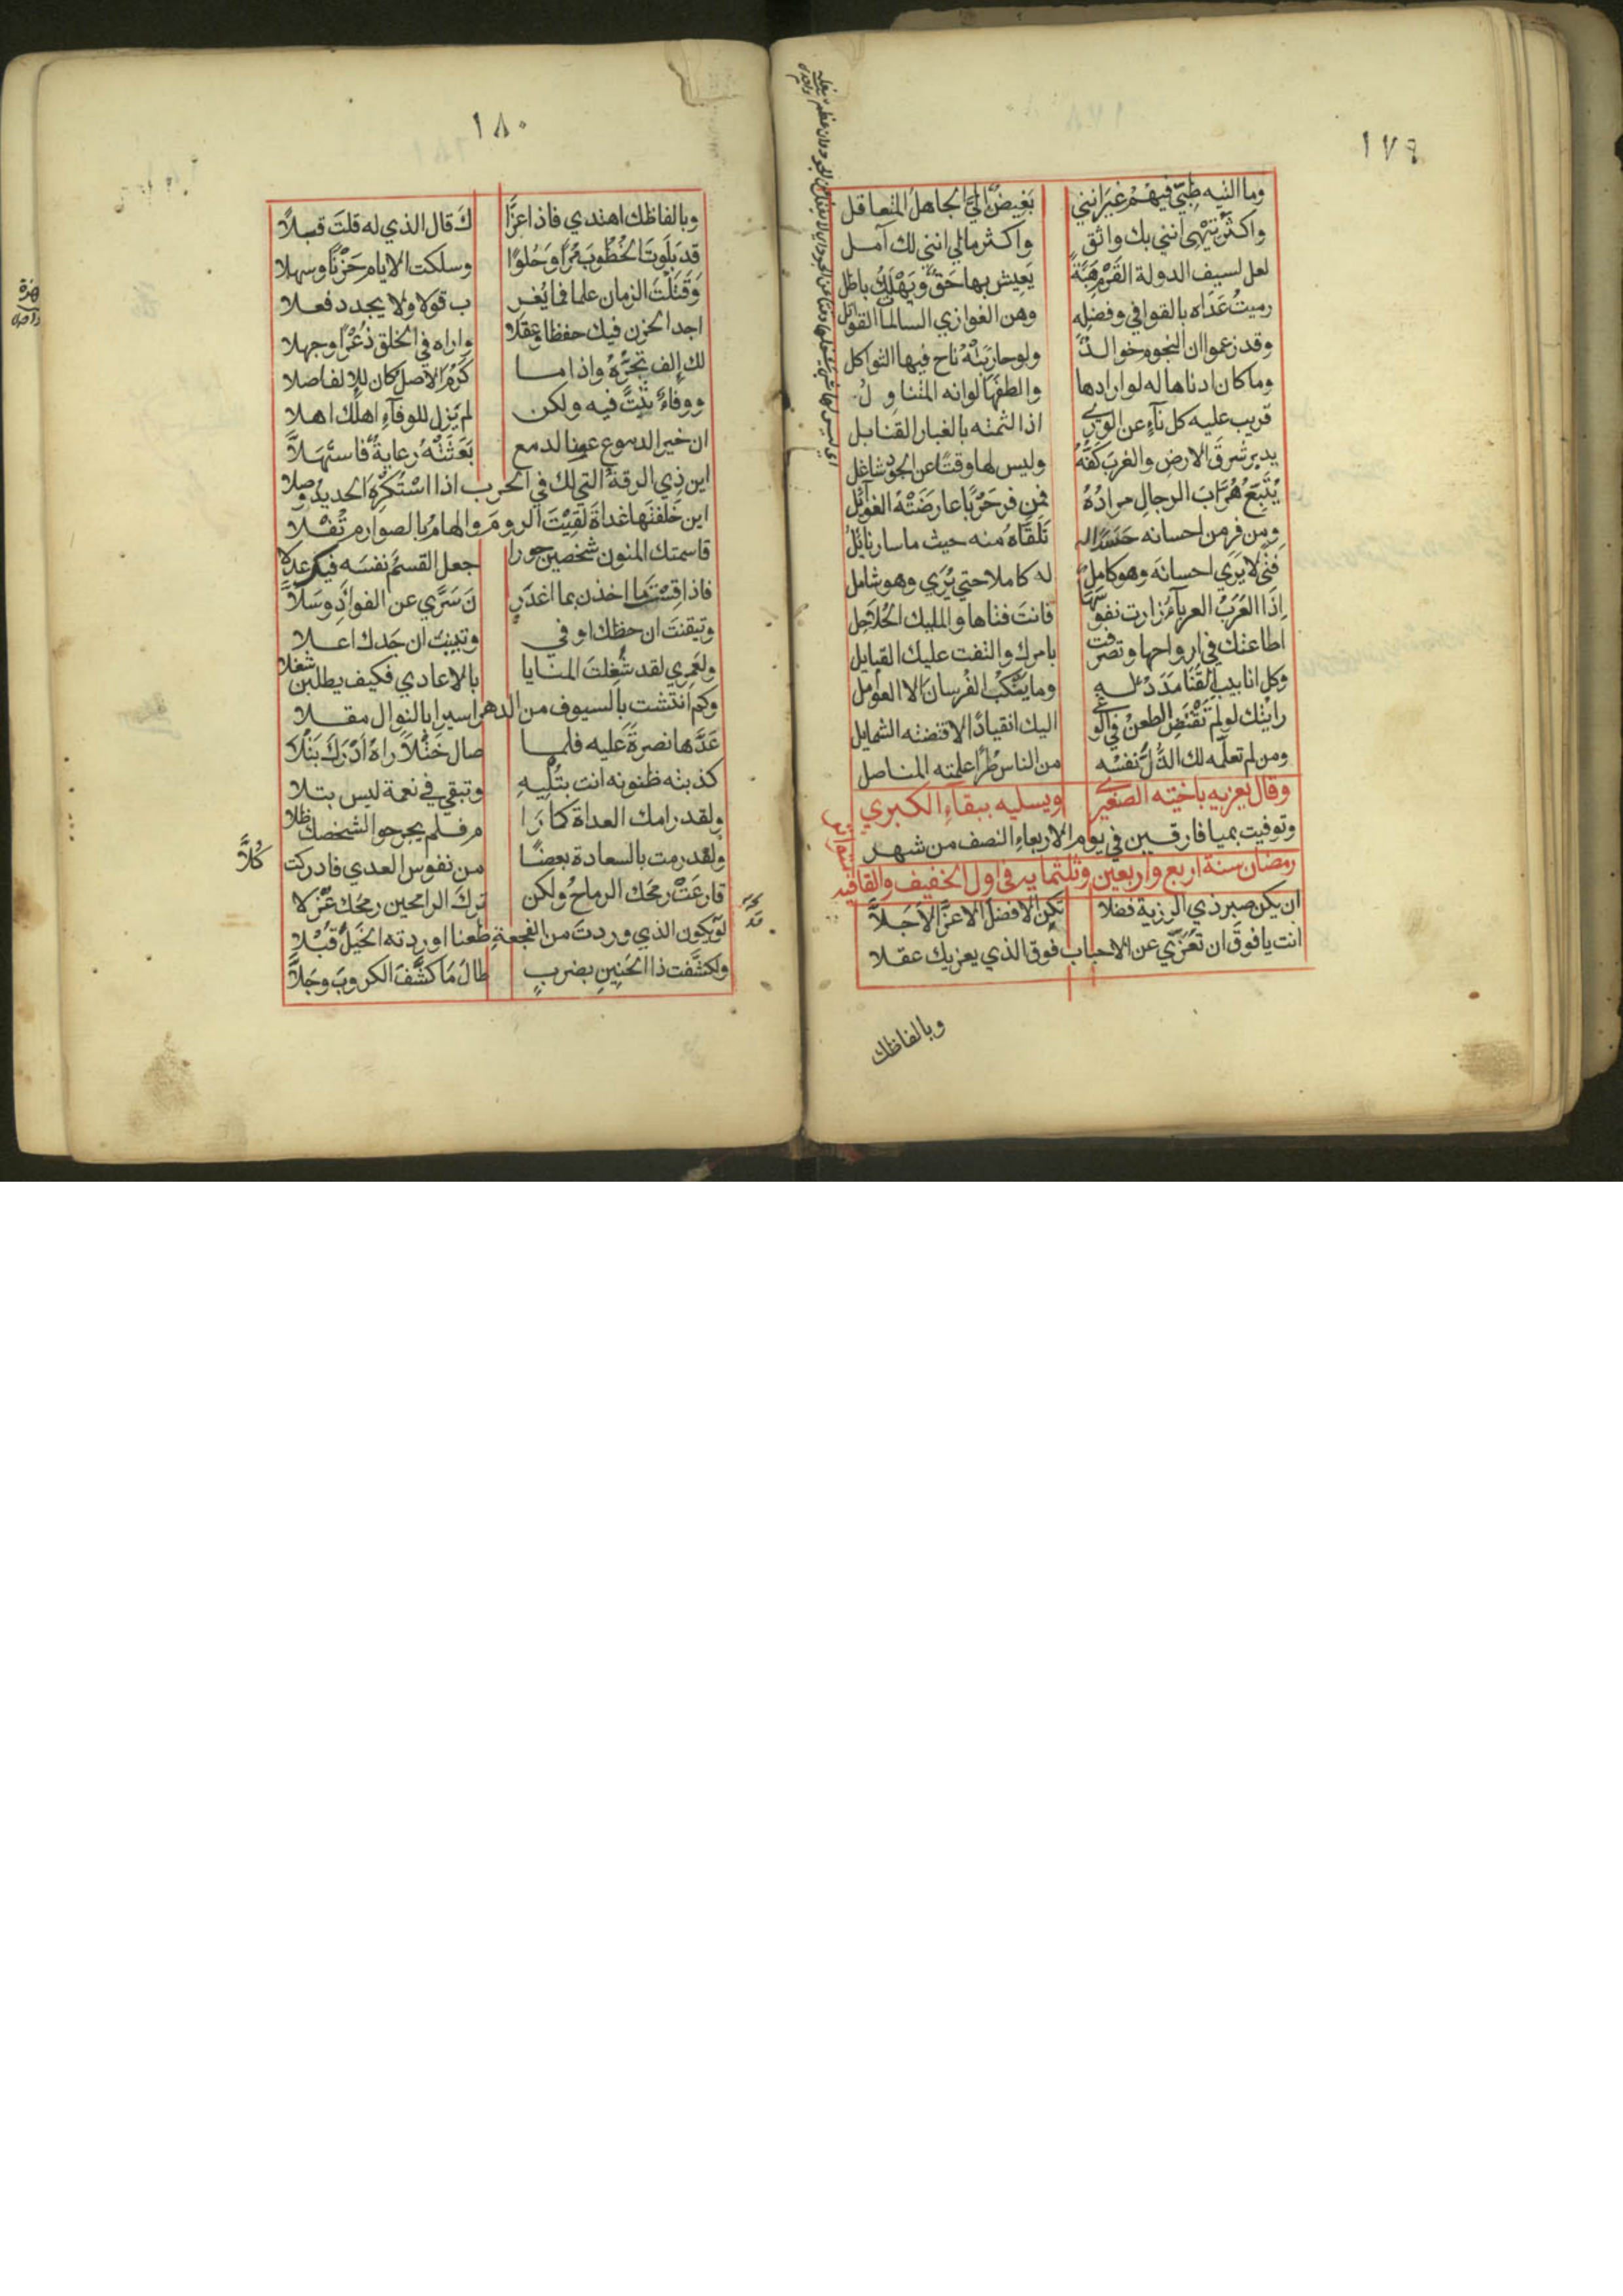 ١٧٩
وما التيه طِبّي فيهم غير انني بَغِيضٌ اليَّ الجاهلُ المتعاقل
واكثر تِيْهي انني بك واثق واكثر مالي انني لك آمل
لعل لسيف الدولة القَرْم هَبَّةً يَعِيش بها حَقٌّ وَيَهْلِكُ باطل
رميتُ عَدَاه بالقوافي وفضله وهن الغوازي السالمات القواتل
وقد زعموا ان النجوم خوالد ولو حاربَتْهُ ناح فيها الثواكل
وما كان ادناها له لو ارادها والطفها لو انه المتناوِلُ
قريب عليه كل نآءٍ عن الوري اذا لثمته بالغبار القنابل
يدبر شرقَ الارضِ والغربَ كفُّهُ وليس لها وقتًا عن الجود شاغل
يُتَبِّعُ هُرَّابَ الرجالِ مرادُهُ فمن فر حَرْبًا عارضَتْهُ الغوآئل
ومن فر من احسانه حَسَدًا له تَلَقَّاهُ منه حيث ما سار نايلُ
فتي لا يَرَي احسانَه وهو كاملٌ له كاملا حتي يُرَي وهو شامل
اِذَا العَرَبُ العرباءُ زارت نفوسَها فانتَ فتاها والمليك الحُلاَحِل
اطاعتك في ارواحها وتصرفت بامرك والتفت عليك القبايل
وكل انابيب القَنَا مَدَدٌ له وما يَنْكُبُ الفُرسانَ الا العوامل
رايتك لو لم تَقْتَضِ الطعنَ في الوغي اليك انقيادًا لاقتضته الشمايل
ومن لم تعلّمه لك الذُّلَّ نفسُه من الناس طُرًّا علمته المناصل
وقال يعزيه باخته الصغيري ويسليه ببقاءِ الكبري
وتوفيت بميافارقين في يوم الاربعاءِ النصف من شهر
رمضان سنة اربع واربعين وثلثمايه في اول الخفيف والقافيه
ان يكن صبر ذي الرزية فضلا تكنِ الافضلَ الاعزَّ الاَجَلاَّ
انت يا فوقَ ان تعَزَّي عن الاحباب فوق الذي يعزيك عقلا
وبالفاظك
١٨٠
وبالفاظك اهتدي فاذا عزَّا كَ قال الذي له قلتَ قبلاً
قد بَلَوتَ الخُطُوبَ مُرًّا وَحُلوًا وسلكت الايام حَزْنًا وسهلا
وَقَتَلْتَ الزمان علما فما يُغر ب قولا ولا يجدد فعلا
اجد الحزن فيك حفظا وعقلا واراه في الخلق ذُعْرًا وجهلا
لك اِلف تجرّهُ واذا ما كَرُمَ الاصل كان للالف اصلا
ووفاءٌ نبتَّ فيه ولكن لم يَزل للوفآءِ اهلُك اهلا
ان خير الدموع عينا لدمع بَعَثَتْهُ رعايةٌ فاستَهَلاَّ
اين ذي الرقة التي لك في الحرب اذا اسْتُكْرِهَ الحديدُ وصلا
اين خَلفتَها غداةَ لَقِيْتَ الرومَ والهامُ بالصوارم تُفْلا
قاسمتك المنون شخصين جورا جعل القَسْمُ نفسَه فيك عدلا
فاذا قِسْتَ ما اخذن بما اغدَر نَ سَرَّي عن الفوادِ وسَلاَّ
وتيقنتَ ان حظك اوفي وتبينت ان جَدك اعلا
ولعمري لقد شُغِلتَ المنايا بالاعادي فكيف يطلبن شغلا
وكم انتشتَ بالسيوف من الدهر اسيرا بالنوال مقلا
عَدَّها نصرةً عليه فلما صال خَتْلاً راهُ اَدْركَ تَبْلا
كذبته ظنونه انت تبليهِ وتبقي في نعمة ليس تبلا
ولقد رامك العداة كما رَا م فلم يجرحوا لشخصك ظلا
ولقد رمت بالسعادة بعضًا من نفوس العدي فادركت كُلاَّ
قارعَتْ رمحَك الرماحُ ولكن تركَ الرامحين رمحُك عُزْلا
لو يكون الذي وردتَ من الفجعةِ طعنا اوردته الخَيلَ قُبْلا
ولكشَّفت ذا الحَنِينِ بضربٍ طالَ مَا كشَّفَ الكروبَ وجَلاَّ